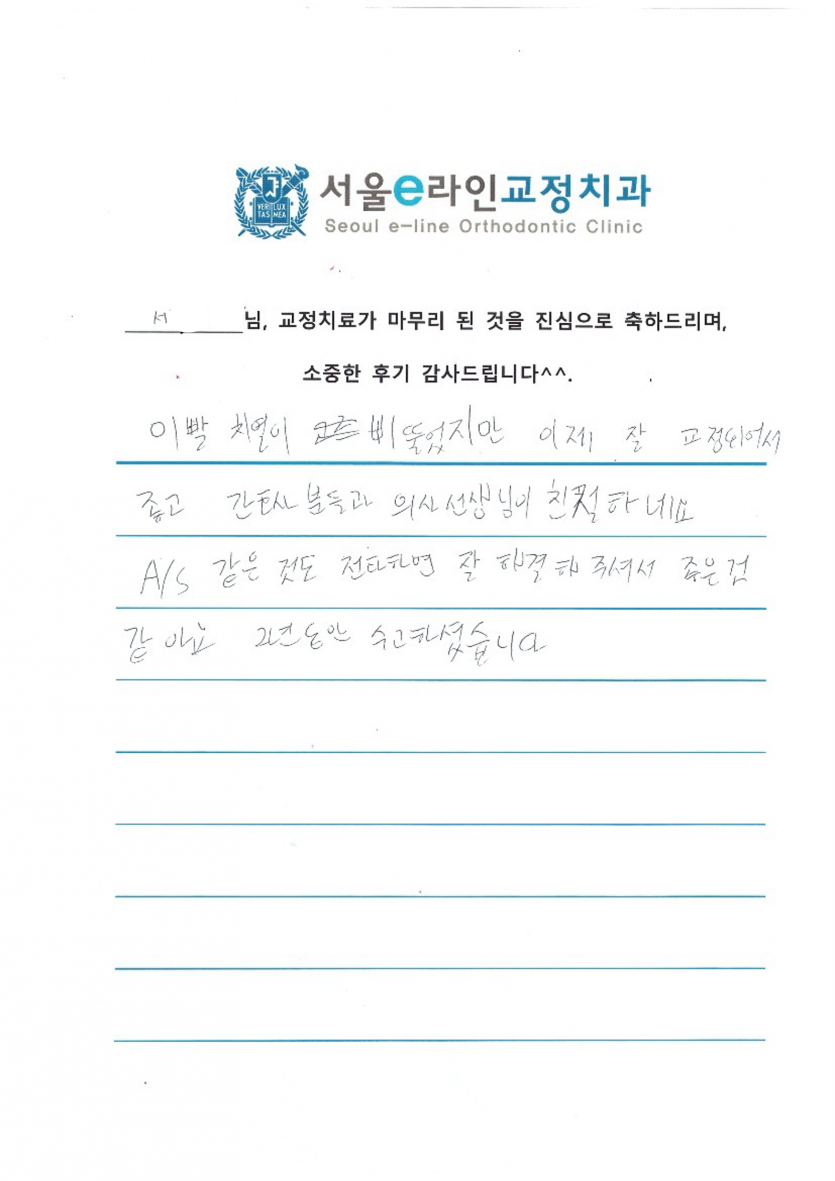 서울e라인교정치과
Seoul e-line Orthodontic Clinic
VERI LUX
TAS MEA
서 님, 교정치료가 마무리 된 것을 진심으로 축하드리며,
소중한 후기 감사드립니다^^.
이빨 치열이 삐뚤었지만 이제 잘 교정되어서
좋고 간호사분들과 의사선생님이 친절하네요
A/S 같은 것도 전화하면 잘 해결해 주셔서 좋은것
같아요 2년동안 수고하셨습니다